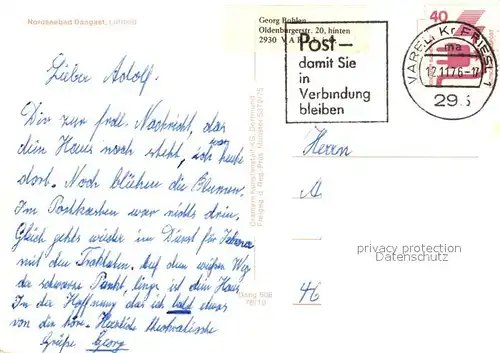 Nordseebad Dangast, Luftbild
Georg Bohlen
Oldenburgerstr. 20, hinten
2930 VAREL
Post –
damit Sie
in
Verbindung
bleiben
40
VAREL, Kr FRIESL 1
ma
12.11.76-17
293
Lieber Adolf.
Dir zur frdl. Nachricht, das
dein Haus noch steht, ich war heute
dort. Noch blühen die Blumen.
Im Postkasten war nichts drin.
Gleich gehts wieder im Dienst für Jehova
mit den Traktaten. Auf dem weißen Weg
der schwarze Punkt, links ist dein Haus
In der Hoffnung das ich bald etwas
von dir höre. Herzliche theokratische
Grüße Georg
Herrn
A
H
Cramers Kunstanstalt KG, Dortmund
Dang 508
privacy protection
Datenschutz